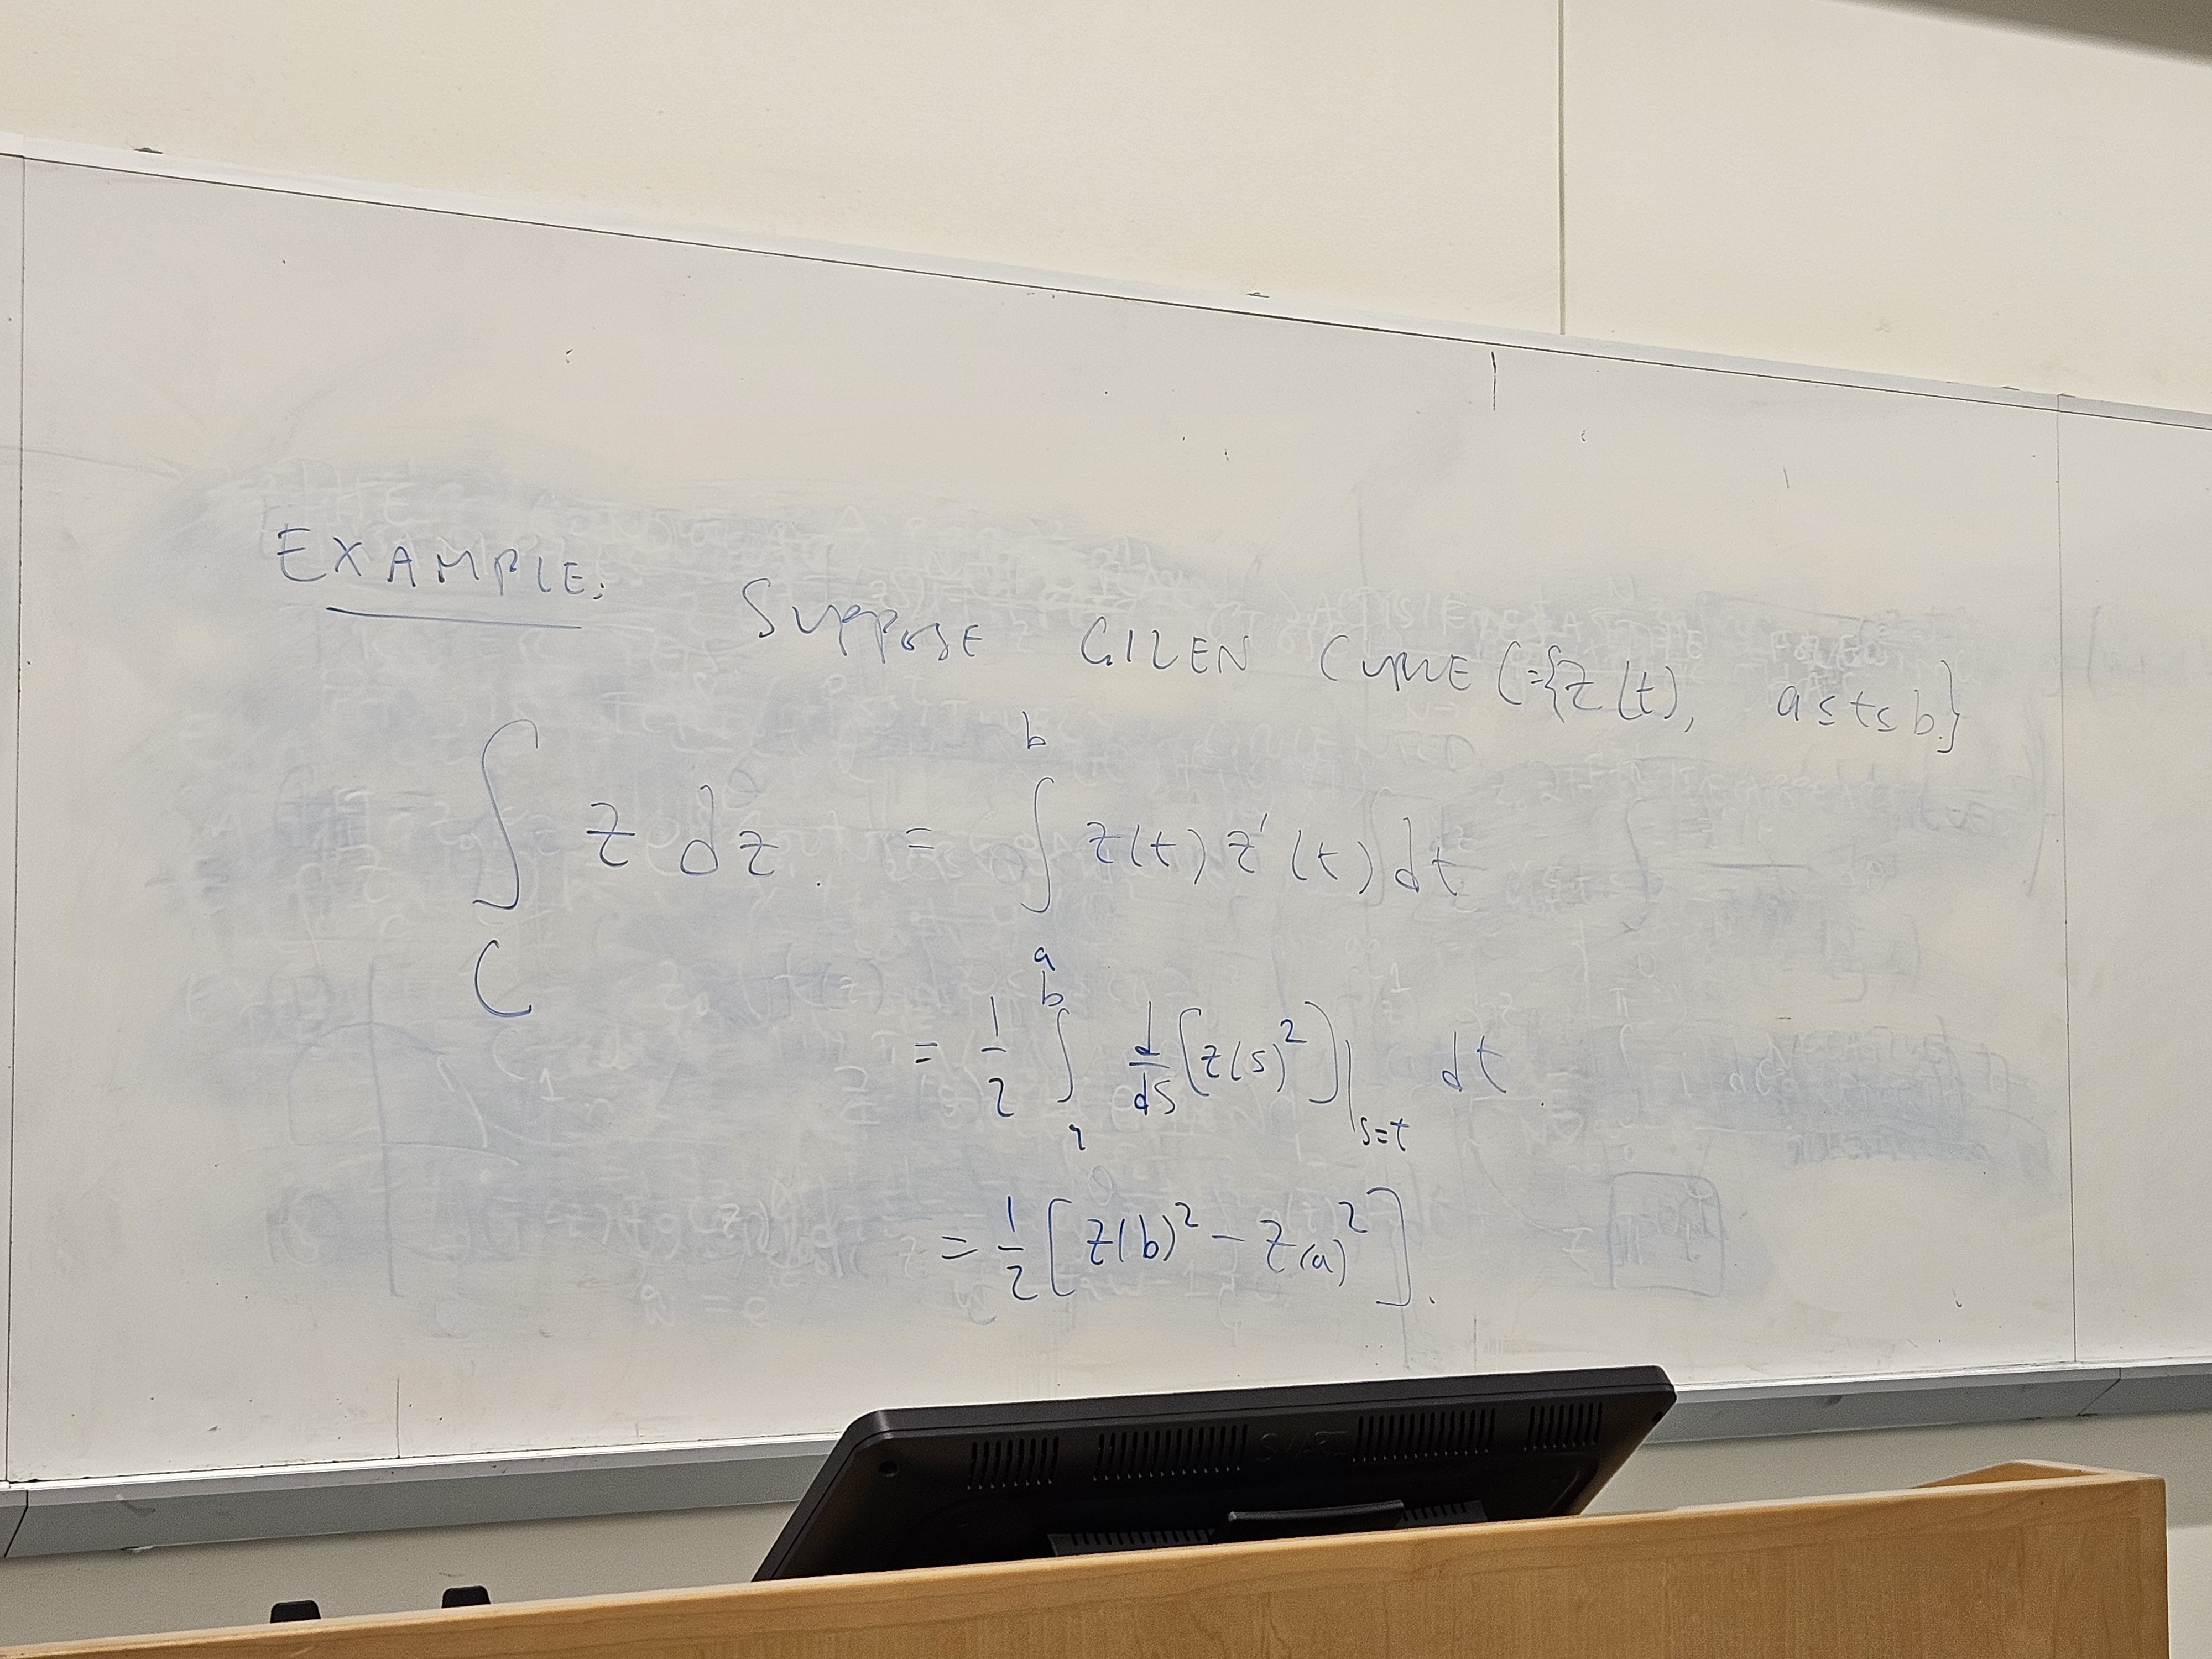 EXAMPLE: SUPPOSE GIVEN CURVE C={z(t), a≤t≤b}
∫_C z dz. = ∫_a^b z(t) z'(t) dt
= 1/2 ∫_a^b d/ds [z(s)^2]|_{s=t} dt
= 1/2 [z(b)^2 - z(a)^2].